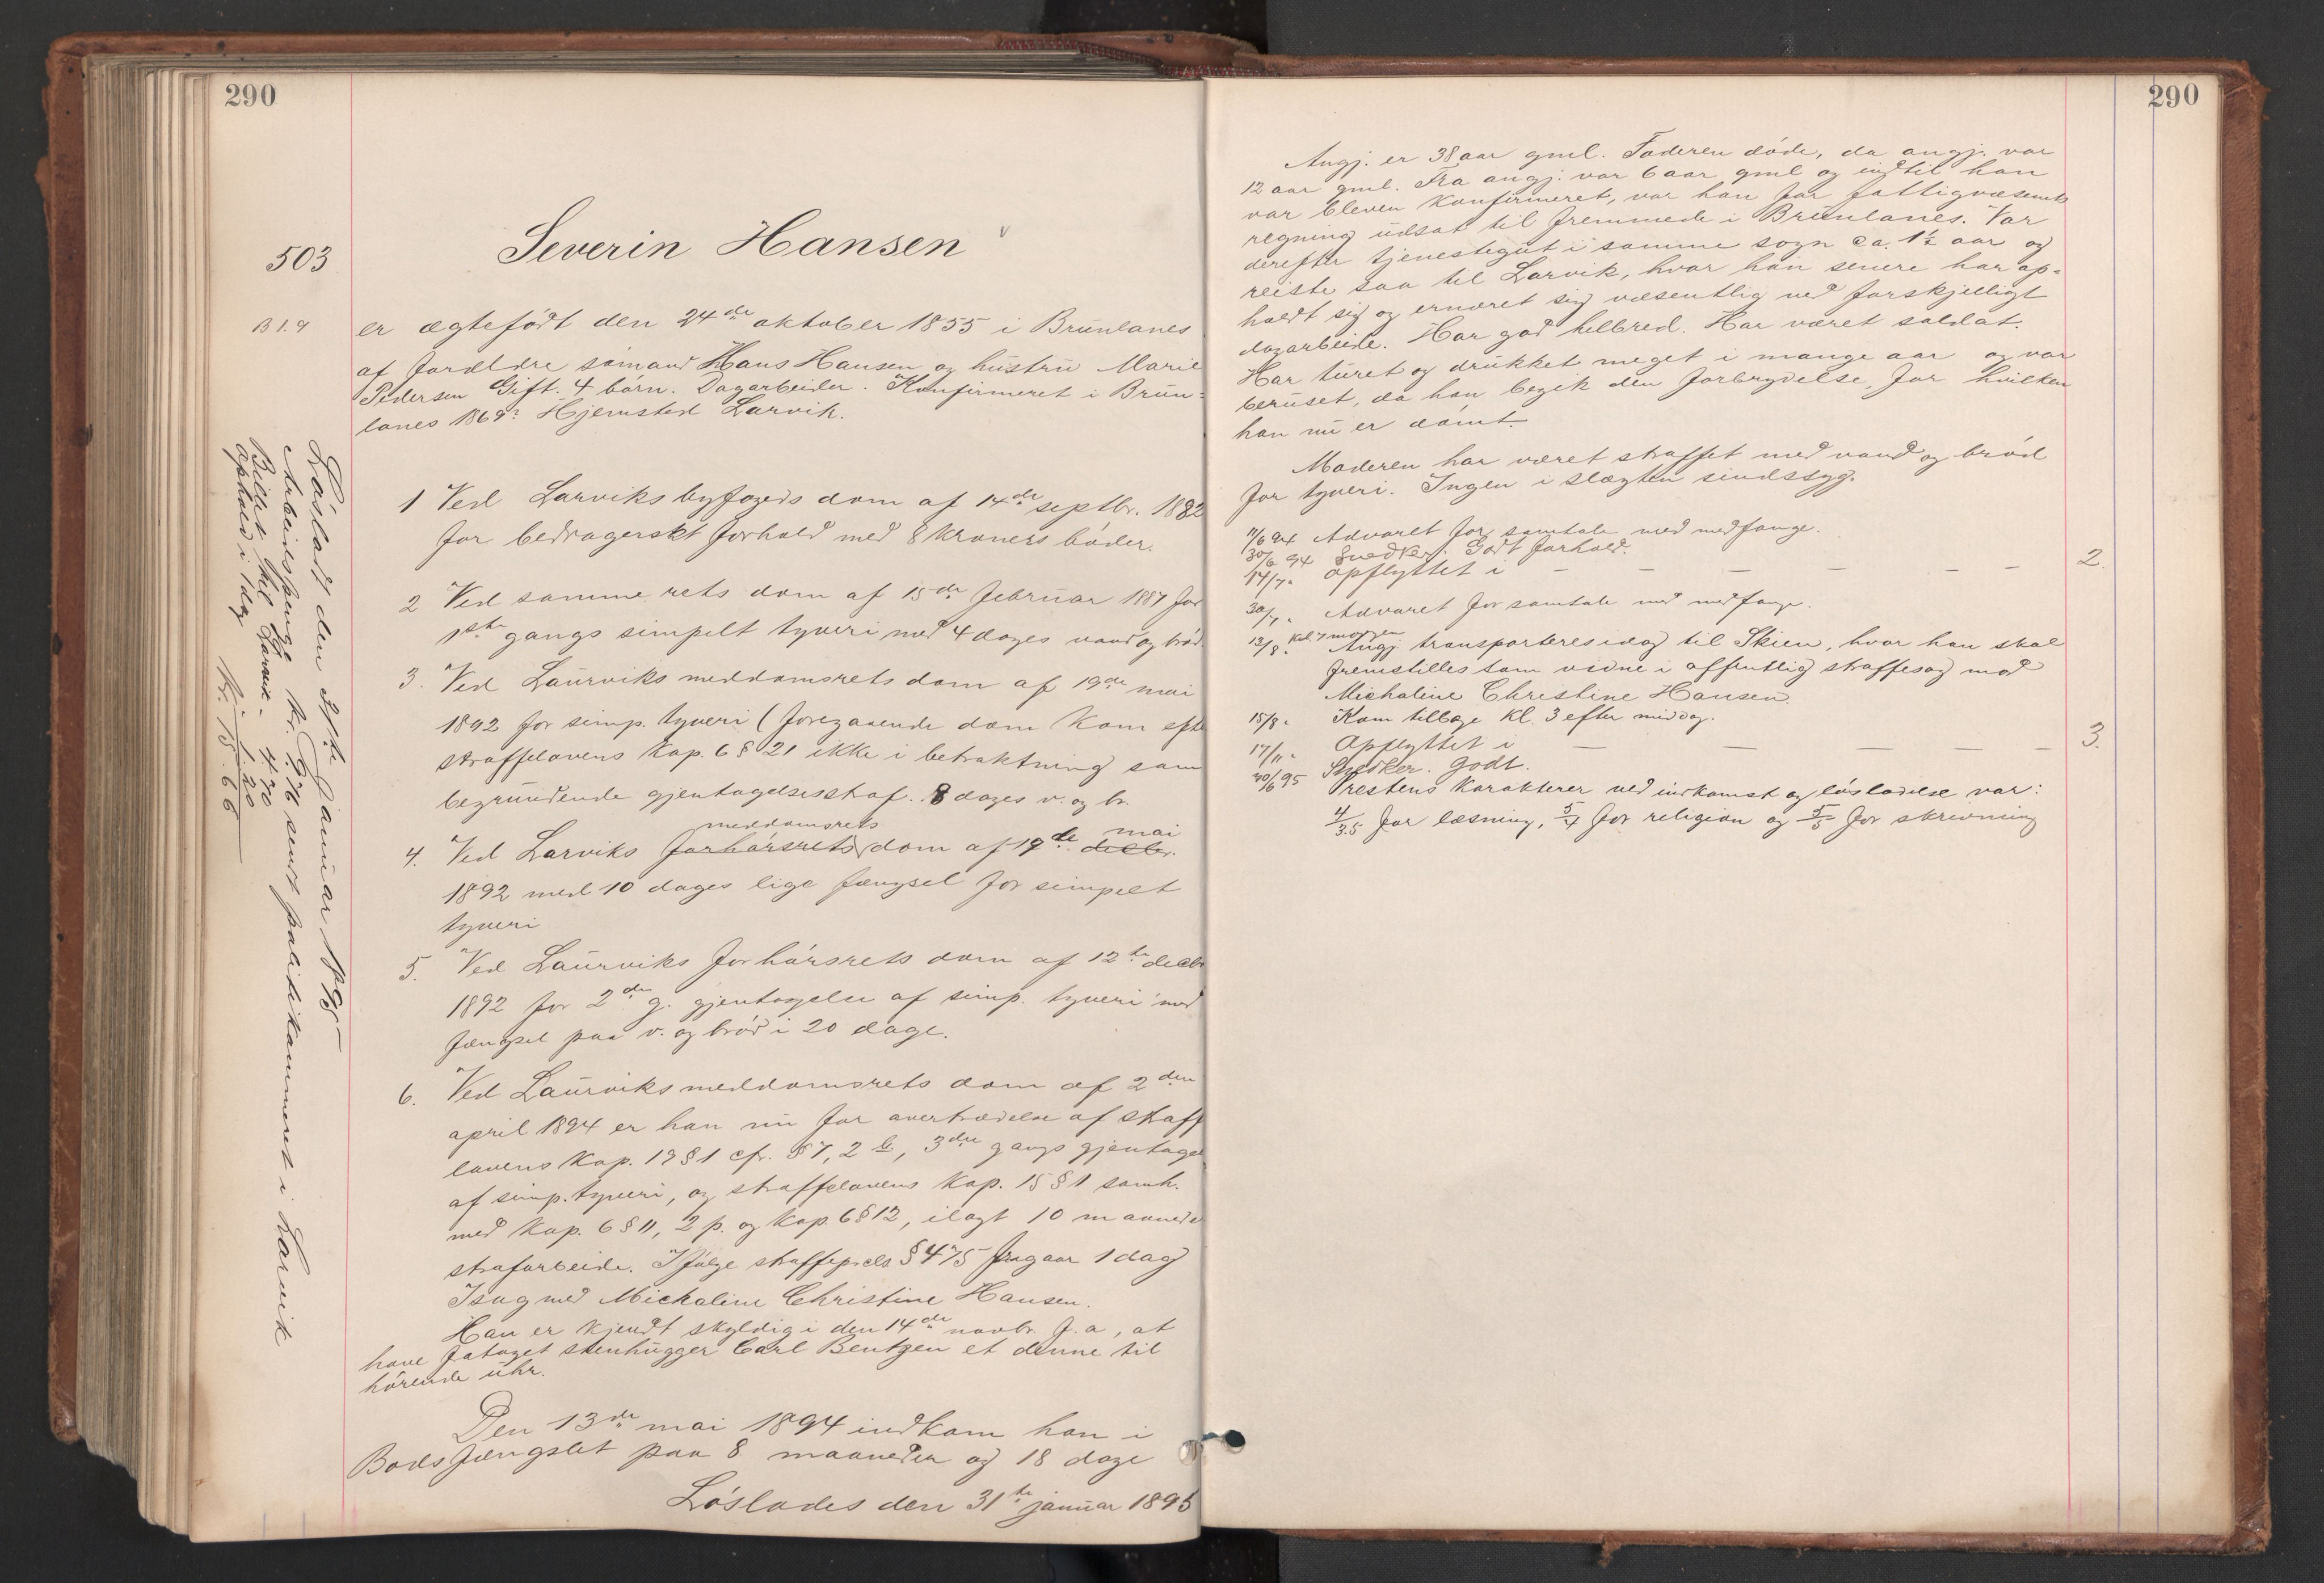 290
503
Severin Hansen
B 1.9
er ægtefödt den 24de oktober 1855 i Brunlanes
af forældre sömand Hans Hansen og hustru Marie
Pedersen Gift. 4 börn. Dagarbeider. Konfirmeret i Brun-
lanes 1869? Hjemsted Larvik.
1 Ved Larviks byfogeds dom af 14de septbr. 1882
for bedragerskt forhold med 8 kroners böder.
2 Ved samme rets dom af 15de februar 1887 for
1ste gangs simpelt tyveri med 4 dages vand og bröd
3. Ved Laurviks meddomsrets dom af 19de mai
1892 for simp. tyveri (foregaaende dom kom efter
straffelovens Kap. 6 § 21 ikke i betraktning som
begrundende gjentagelsesstraf. 8 dages v. og br.
4. Ved Larviks forhörsrets meddomsrets dom af 19de decbr. mai
1892 med 10 dages lige fængsel for simpelt
tyveri
5. Ved Laurviks forhörsrets dom af 12te decbr
1892 for 2den g. gjentagelse af simp. tyveri med
fængsel paa v. og bröd i 20 dage.
6. Ved Laurviks meddomsrets dom af 2den
april 1894 er han nu for overtrædelse af straffe
lovens Kap. 19 § 1 cfr. § 7, 2 b, 3die gangs gjentagel
af simp. tyveri, og straffelovens Kap. 15 § 1 samh.
med Kap. 6 § 11, 2 p. og Kap. 6 § 12, ilagt 10 maaneder
strafarbeide. Ifölge straffeprcls § 475 fragaar 1 dag
I sag med Michaline Christine Hansen.
Han er kjendt skyldig i den 14de novbr. f.a, at
have fataget stenhugger Carl Bentzen et denne til
hörende uhr.
Den 13de mai 1894 indkom han i
Bodsfængslet paa 8 maaneder og 18 dage
Löslades den 31te januar 1895
Lösladt den 31te Januar 1895
Arbeidspenge kr. 9.76 sendt politikammeret i Larvik
Billet til Larvik - 4.70
ophold i 1 dag 1.20
Kr. 15.66
290
Angj. er 38 aar gml. Faderen döde, da angj. var
12 aar gml. Fra angj. var 6 aar gml og indtil han
var bleven konfirmeret, var han for fattigvæsenets
regning udsat til fremmede i Brunlanes. Var
derefter tjenestegut i samme sogn ca. 1½ aar og
reiste saa til Larvik, hvor han senere har op-
holdt sig og ernæret sig væsentlig ved forskjelligt
dagarbeide. Har god helbred. Har været soldat.
Har turet og drukket meget i mange aar og var
beruset, da han begik den forbrydelse, for hvilken
han nu er dömt.
Moderen har været straffet med vand og bröd
for tyveri. Ingen i slægten sindssyg.
11/6 94 Advaret for samtale med medfange.
30/6 94 Snedker. Godt forhold.
14/7 " Opflyttet i — — — — — — 2.
30/7 " Advaret for samtale med medfange.
13/8 " kl. 7 morgen Angj. transporteres idag til Skien, hvor han skal
fremstilles som vidne i offentlig straffesag mod
Michaline Christine Hansen.
15/8 " Kom tilbage kl. 3 efter middag.
17/11 " Opflyttet i — — — — — 3.
30/1 95 Snedker. Godt.
Prestens karakterer ved indkomst og lösladelse var:
4/3.5 for læsning, 5/4 for religion og 5/5 for skrivning